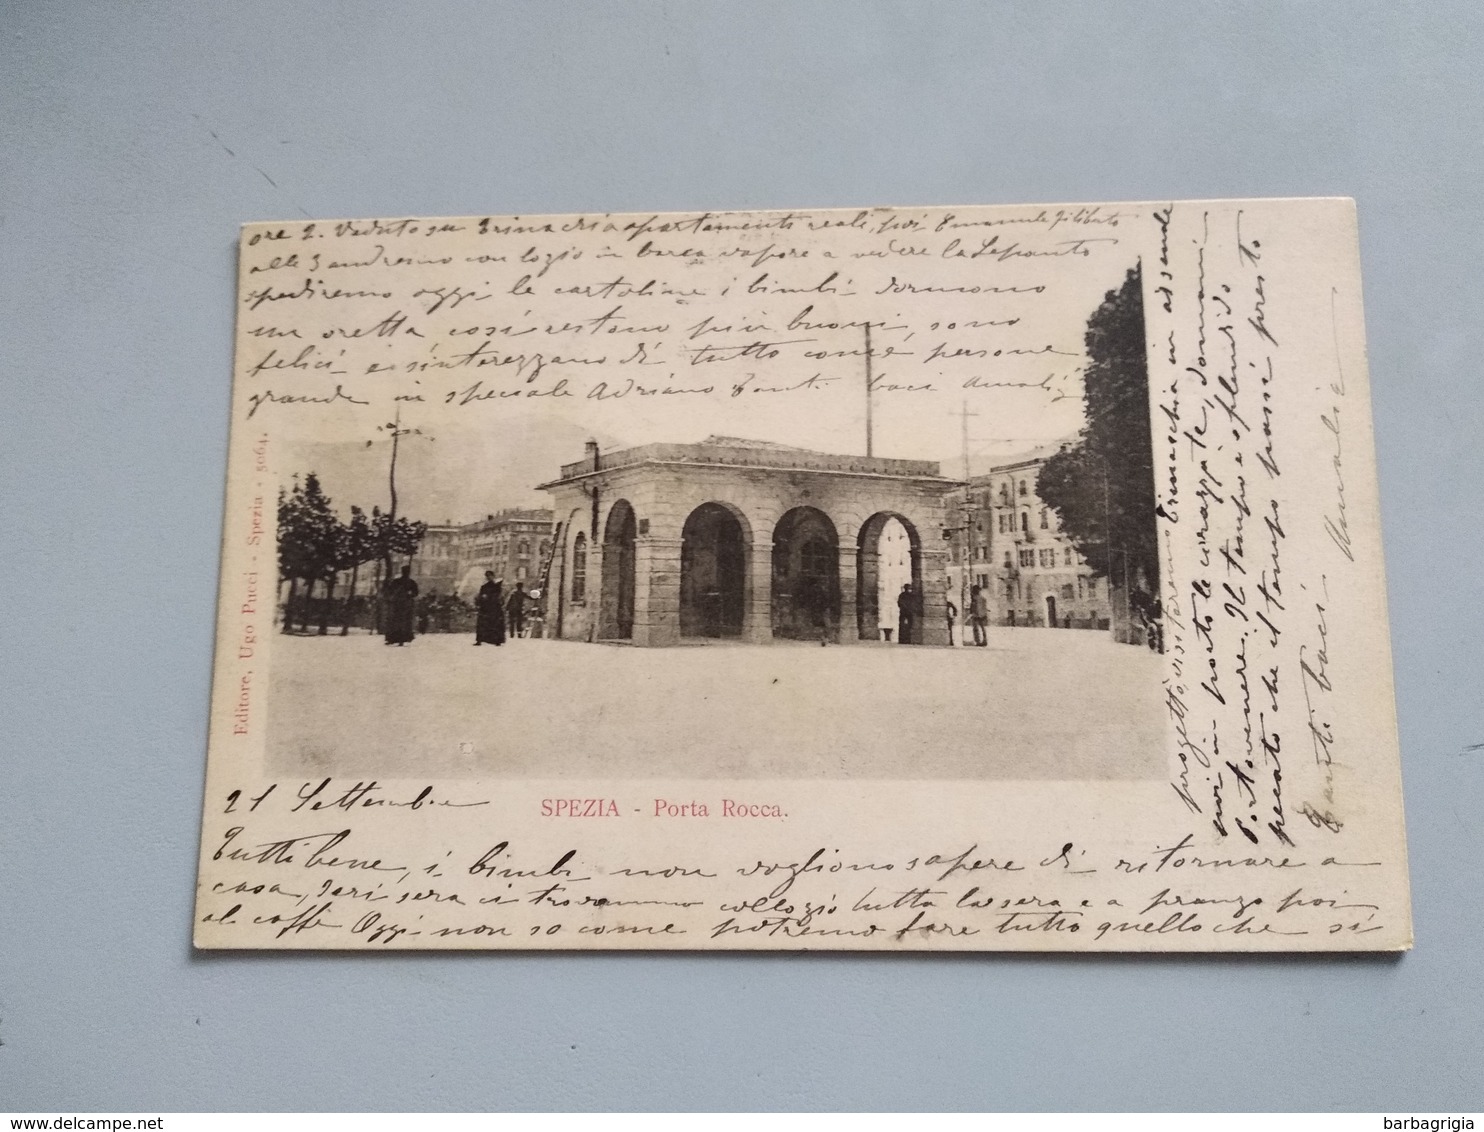 ore 2. Veduto su Trinacria apartamenti reali, poi Emanuele Filiberto
alle 3 andremo con lo zio in barca vapore a vedere la Lepanto
spediremo oggi le cartoline i bimbi dormono
un oretta così restono più buoni, sono
felici e s'interezzano di tutto come persone
grande in speciale Adriano Tanti baci Amalia
Editore, Ugo Pucci - Spezia - 5064.
21 Settembre
SPEZIA - Porta Rocca.
Tutti bene, i bimbi non vogliono sapere di ritornare a
casa, Ieri sera ci trovammo collo zio tutta la sera e a pranzo poi
al caffè Oggi non so come potremo fare tutto quello che si
progettò, visitaremo in assenda
poi in porto le corazzate, domani
Portovenere. Il tempo è splendido
peccato che il tempo passi presto
Tanti baci Amalia
barbagrigia